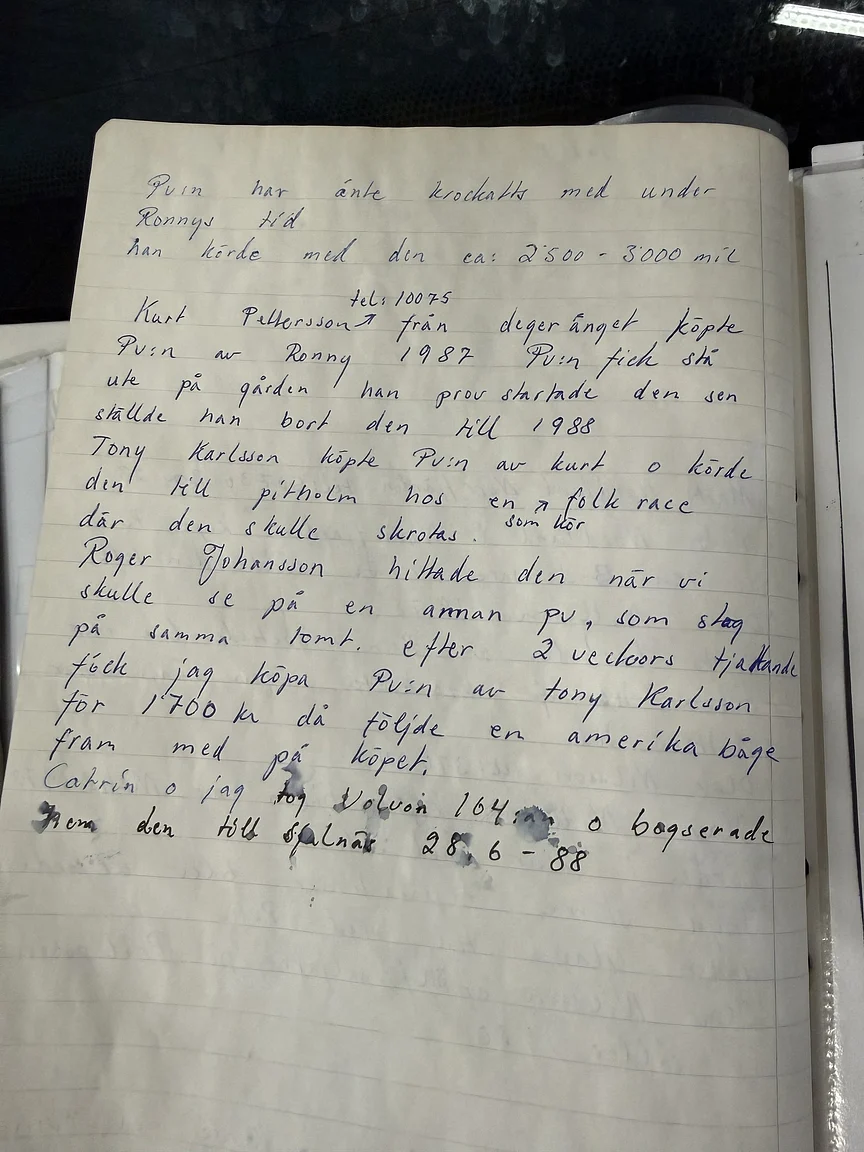 Pv:n har änte krockatts med under
Ronnys tid
han körde med den ca: 2'500 - 3'000 mil
tel: 10075
Kurt Pettersson ↗ från degeränget köpte
Pv:n av Ronny 1987 Pv:n fick stå
ute på gården han prov startade den sen
ställde han bort den till 1988
Tony Karlsson köpte Pv:n av kurt o körde
den till pitholm hos en ↗ folk race
där den skulle skrotas. som kör
Roger Johansson hittade den när vi
skulle se på en annan pv, som stog
på samma tomt. efter 2 veckors tjattande
fick jag köpa Pv:n av tony Karlsson
för 1'700 kr då följde en amerika båge
fram med på köpet.
Catrin o jag tog Volvon 164:an o bogserade
hem den till sjulnäs 28.6 - 88